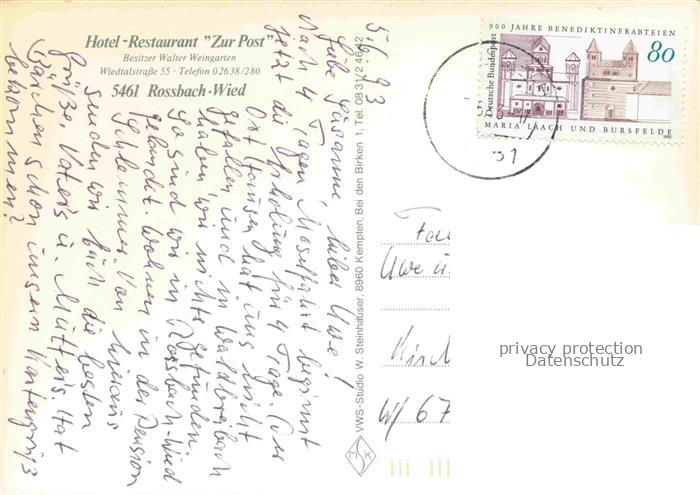 Hotel-Restaurant "Zur Post"
Besitzer Walter Weingarten
Wiedtalstraße 55 · Telefon 02638/280
5461 Rossbach·Wied
5.6.93
Liebe Susanne, lieber Uwe!
Nach 4 Tagen Moselfahrt beginnt
jetzt die Erholung für 4 Tage. Der
Ort Hausen hat uns nicht
gefallen und in Waldbreitbach
haben wir nichts gefunden.
So sind wir in Rossbach-Wied
gelandet. Wohnen in der Pension
Schlemmer. Von hieraus
senden wir Euch die besten
Grüße, Vati u. Mutti. Hat
Bärchen schon unsern Kartengruß
bekommen?
VWS-Studio W. Steinhauser, 8960 Kempten, Bei den Birken 1, Tel. 0831/24622
MSK
900 JAHRE BENEDIKTINERABTEIEN
80
Deutsche Bundespost
MARIA LAACH UND BURSFELDE
1993
31
Fa
Uwe u.
Kirch
W 67
privacy protection
Datenschutz